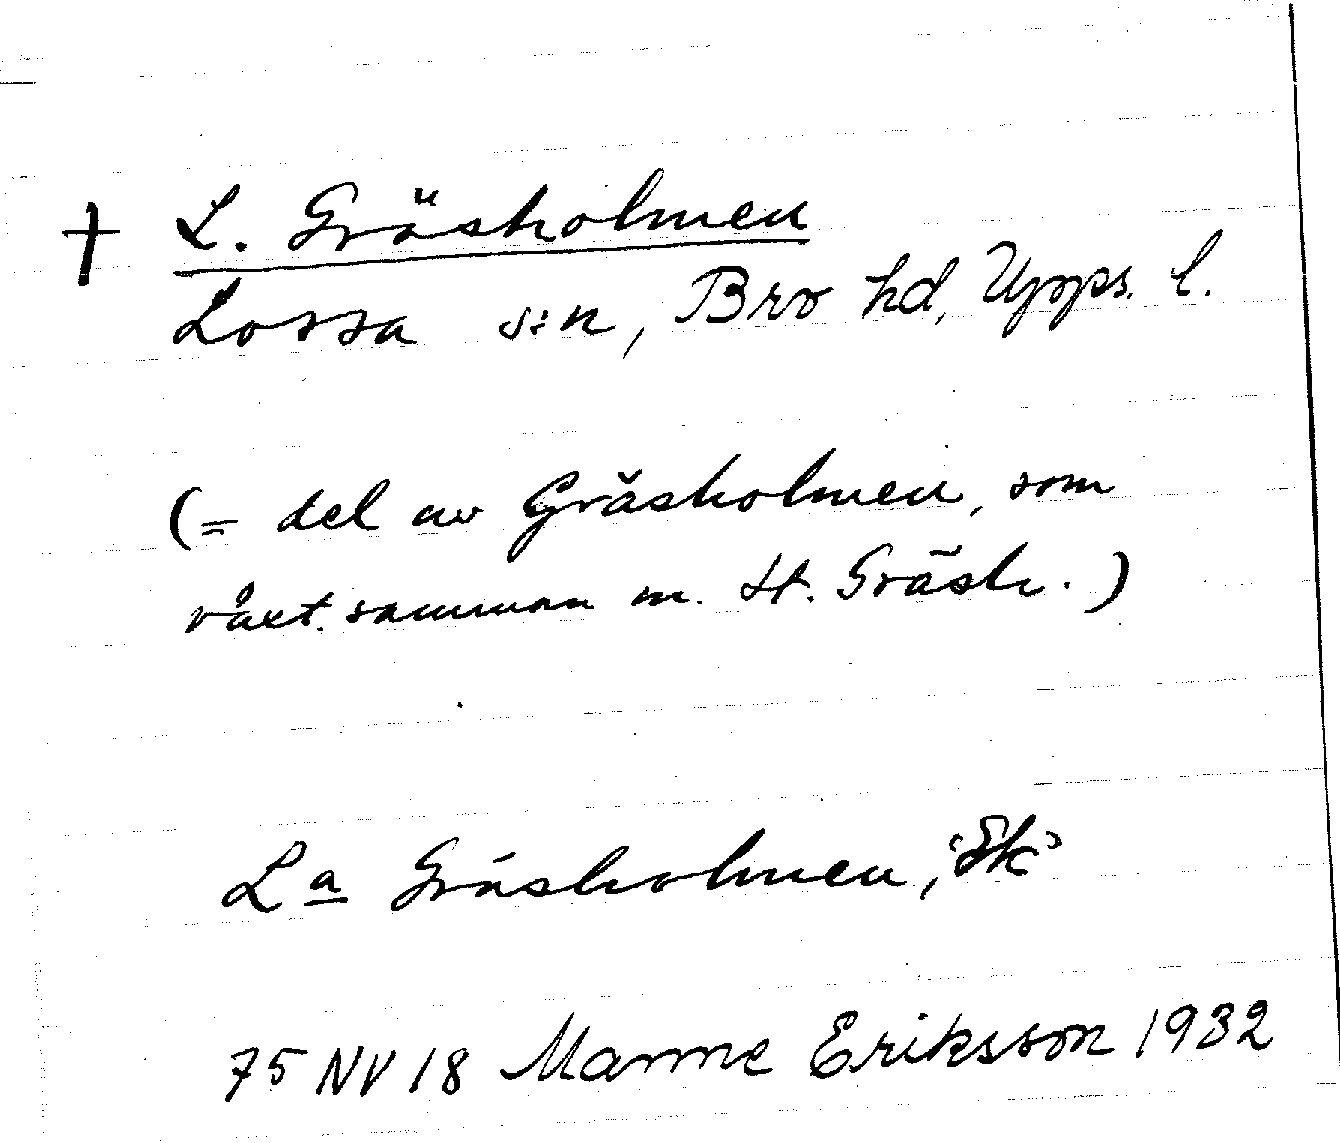 † L. Gräsholmen
Lossa s:n, Bro hd, Upps. l.
(= del av Gräsholmen, som
växt. samman m. St. Gräsh.)
La Gräsholmen, 'Ek'
75 NV 18 Manne Eriksson 1932